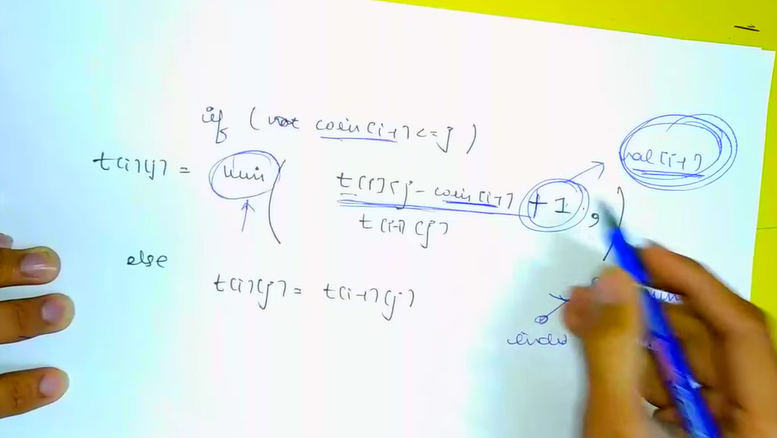 if ( not coin[i-1] <= j )
t[i][j] = min (
t[i][j - coin[i-1] + 1 ,
t[i-1][j]
)
val[i-1]
else
t[i][j] = t[i-1][j]